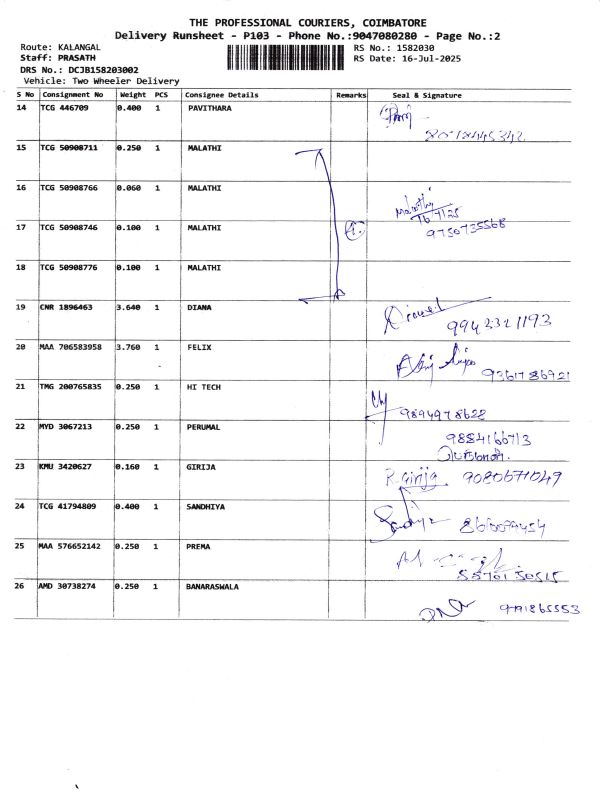 THE PROFESSIONAL COURIERS, COIMBATORE
Delivery Runsheet - P103 - Phone No.:9047080280 - Page No.:2
Route: KALANGAL
RS No.: 1582030
Staff: PRASATH
RS Date: 16-Jul-2025
DRS No.: DCJB158203002
Vehicle: Two Wheeler Delivery
S No Consignment No Weight PCS Consignee Details Remarks Seal & Signature
14 TCG 446709 0.400 1 PAVITHARA
15 TCG 50908711 0.250 1 MALATHI
16 TCG 50908766 0.060 1 MALATHI
Malathi
16/7/25
17 TCG 50908746 0.100 1 MALATHI 4.
9750735568
18 TCG 50908776 0.100 1 MALATHI
19 CNR 1896463 3.640 1 DIANA
9942321193
20 MAA 706583958 3.760 1 FELIX
9361786921
21 TMG 200765835 0.250 1 HI TECH
9894978622
22 MYD 3067213 0.250 1 PERUMAL
9884166713
பெருமாள்.
23 KMU 3420627 0.160 1 GIRIJA
R.Girija 9080671049
24 TCG 41794809 0.400 1 SANDHIYA
Sandiya
25 MAA 576652142 0.250 1 PREMA
26 AMD 30738274 0.250 1 BANARASWALA